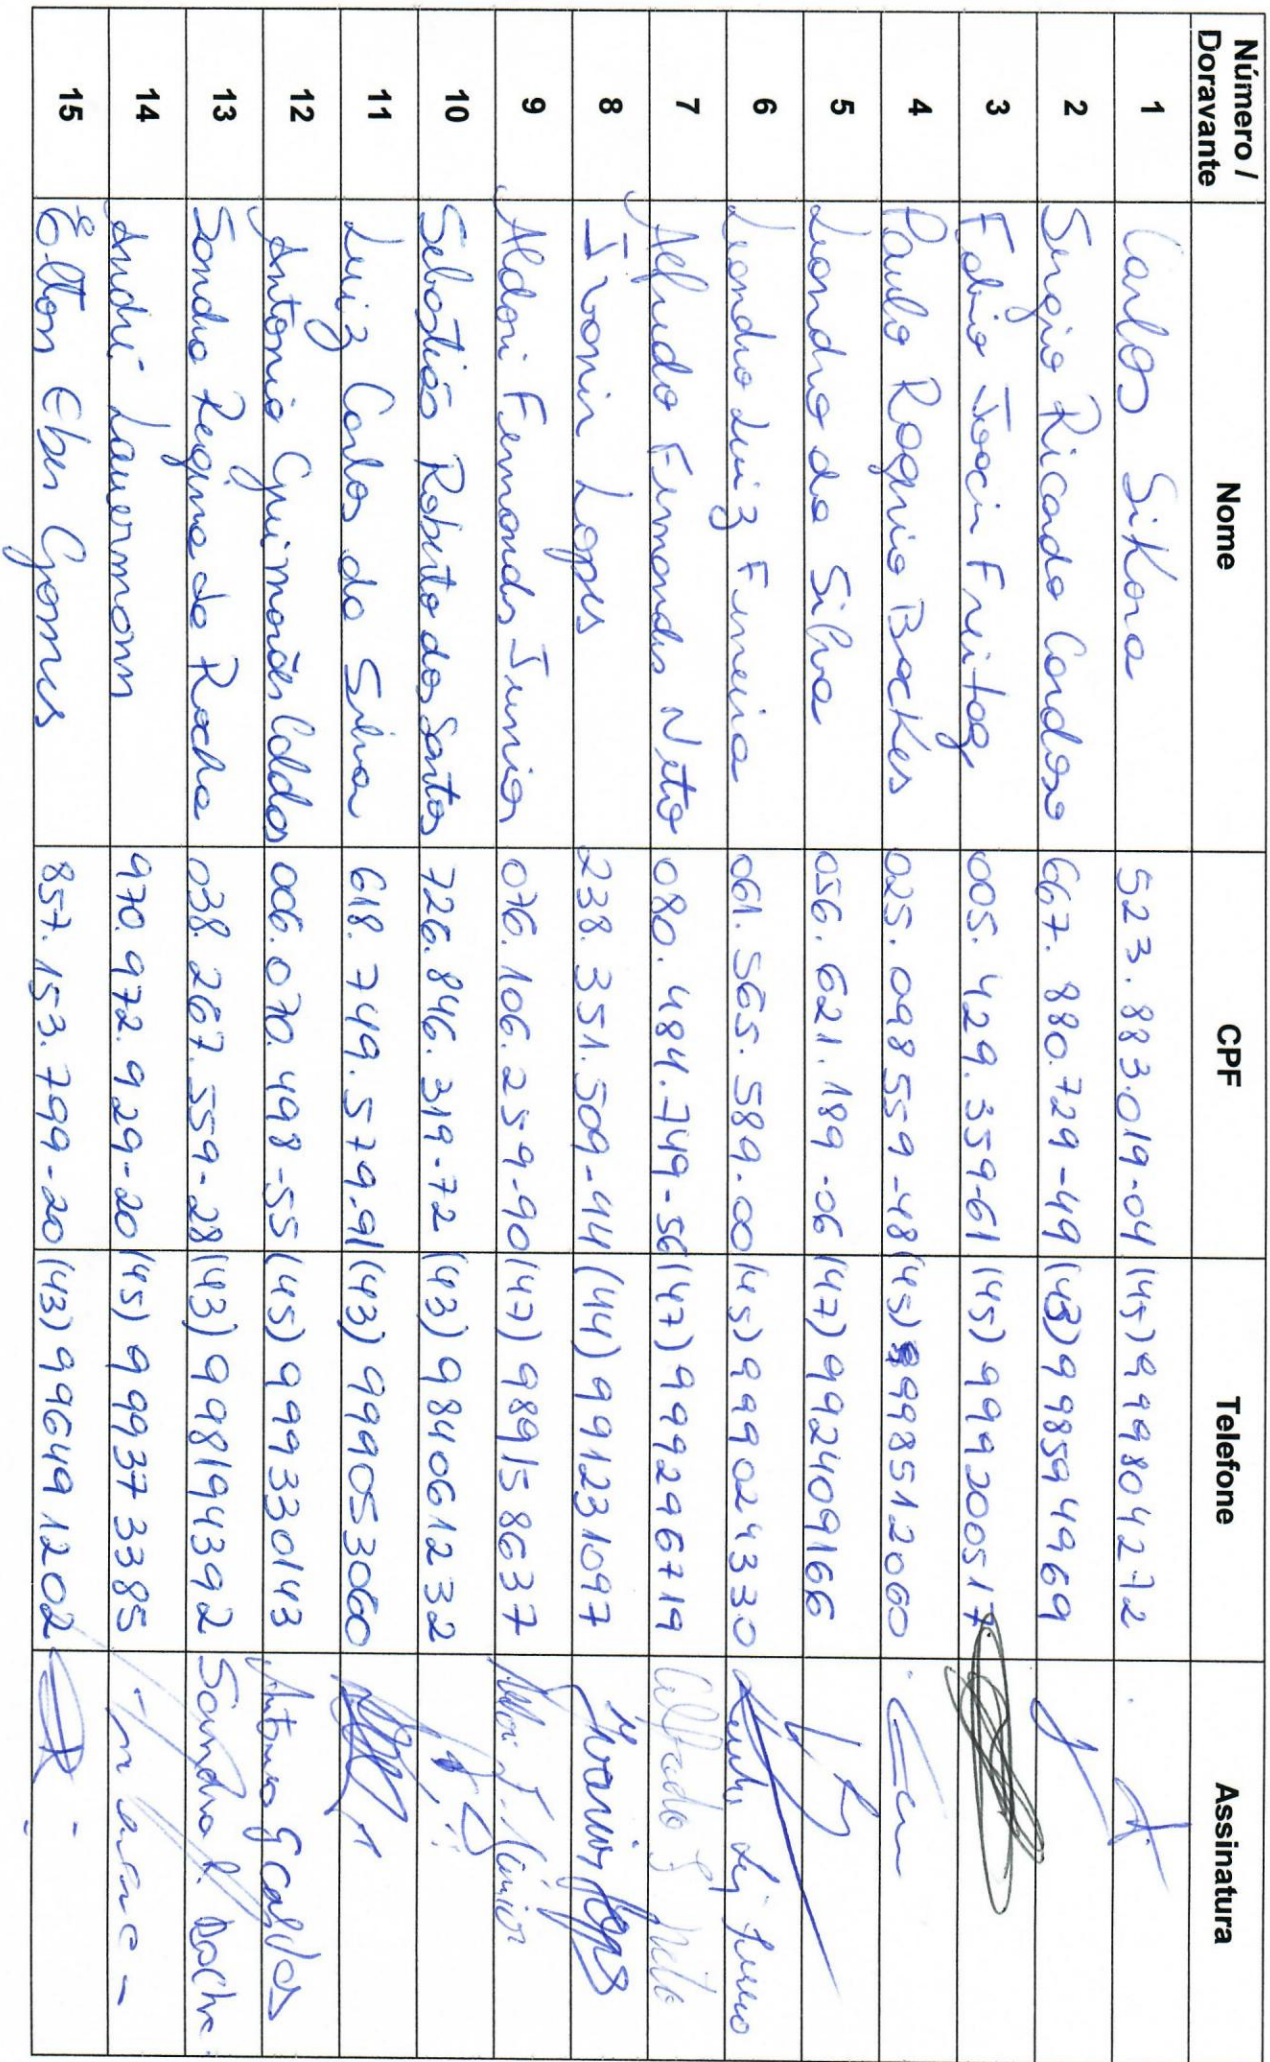 Número / Doravante Nome CPF Telefone Assinatura
1 Carlos Sikora 523.883.019-04 (45) 999804272
2 Sergio Ricardo Cardoso 667.880.729-49 (43) 9998594969
3 Fabio Joacir Freitag 005.429.359-61 (45) 9999200517
4 Paulo Rogerio Backes 025.098559-48 (45) 9998512060
5 Leandro da Silva 056.621.189-06 (47) 992409166
6 Leandro Luiz Ferreira 061.565.589.00 (45) 999024330
7 Alfredo Fernandes Neto 080.484.749-56 (47) 999296719 Alfredo F Neto
8 Ivanir Lopes 238.351.509-44 (44) 991231097 Ivanir Lopes
9 Aldori Fernandes Junior 076.106.259-90 (47) 989158637
10 Sebastião Roberto dos Santos 726.846.319-72 (43) 984061232
11 Luiz Carlos da Silva 618.749.579-91 (43) 999053060
12 Antonio Guimarães Caldas 006.070.498-55 (45) 999330143 Antonio G Caldas
13 Sandra Regina da Rocha 038.267.559-28 (43) 998194392 Sandra R. Rocha
14 André Lauermann 970.972.929-20 (45) 999373385
15 Elton Eber Gomes 857.153.799-20 (43) 996491202